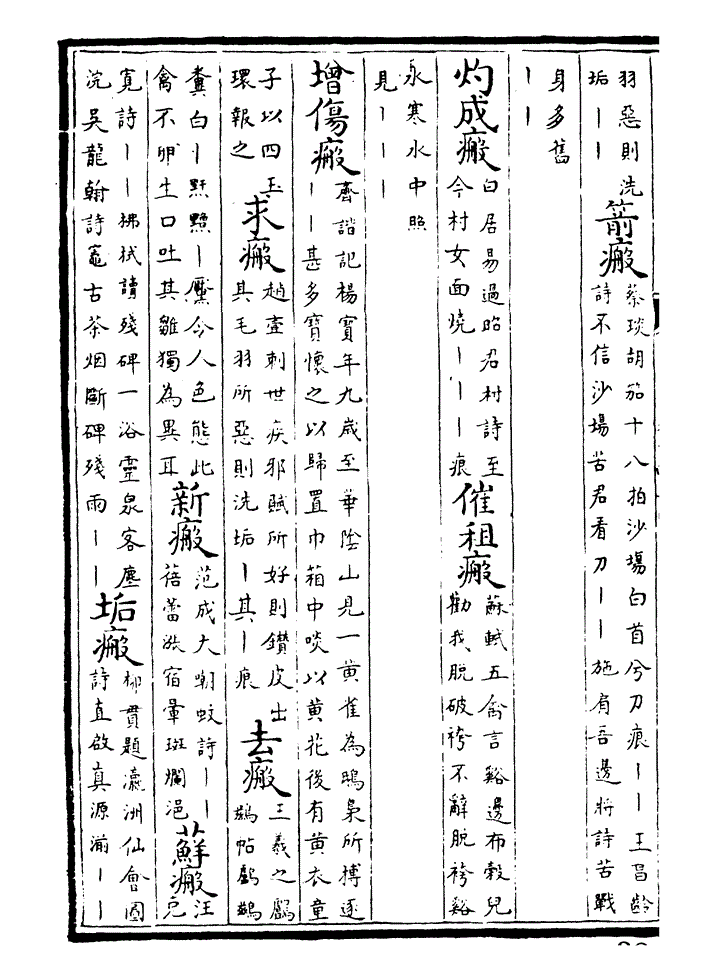 羽惡則洗垢丨丨箭瘢蔡琰胡笳十八拍沙場白首兮刀痕丨丨王昌齡詩不信沙場苦君看刀丨丨施肩吾邊將詩苦戰
身多舊丨丨
灼成瘢白居易過昭君村詩至今村女面燒丨丨丨痕催租瘢蘇軾五禽言谿邊布穀兒勸我脫破袴不辭脫袴谿
水寒水中照見丨丨丨
增傷瘢齊諧記楊寶年九歲至華陰山見一黃雀為鴟梟所搏逐丨丨甚多寶懷之以歸置巾箱中啖以黃花後有黃衣童
子以四玉環報之求瘢趙壹刺世疾邪賦所好則鑽皮出其毛羽所惡則洗垢丨其丨痕去瘢王羲之鸕鷀帖鸕鷀
糞白丨黯丨黶令人色態此禽不卵生口吐其雛獨為異耳新瘢范成大嘲蚊詩丨丨蓓蕾漲宿暈斑斕浥蘚瘢汪克
寬詩丨丨拂拭讀殘碑一浴靈泉客塵浣吳龍翰詩竈古茶烟斷碑殘雨丨丨垢瘢柳貫題瀛洲仙會圖詩直啟真源湔丨丨